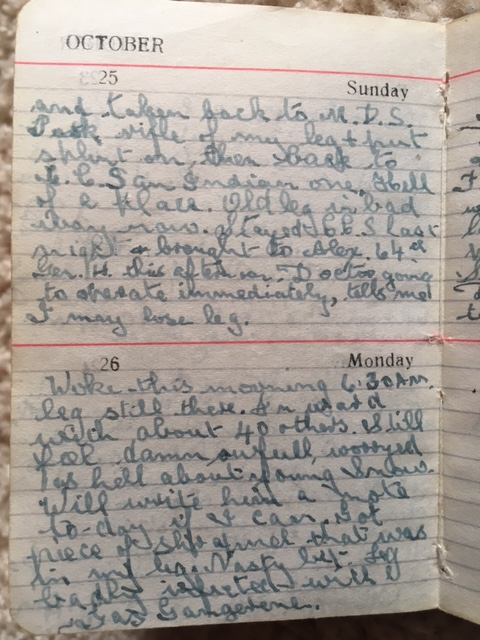 OCTOBER
25 Sunday
and taken back to M.D.S.
Took rifle of my leg & put
splint on, then back to
C.C.S an Indian one, Hell
of a place. Old leg in bad
way now. Stayed C.C.S last
night & brought to Alex. 64th
Gen. H. this afternoon. Doctor going
to operate immediately, tells me
I may lose leg.
26 Monday
Woke this morning 6.30 AM.
leg still there. In ward
with about 40 others. Still
feel damn awfull, worryed
as hell about young
Will write him a note
to-day if I can. Got
piece of shrapnel that was
in my leg. Nasty bit. Leg
badly infected with
gas Gangerene.